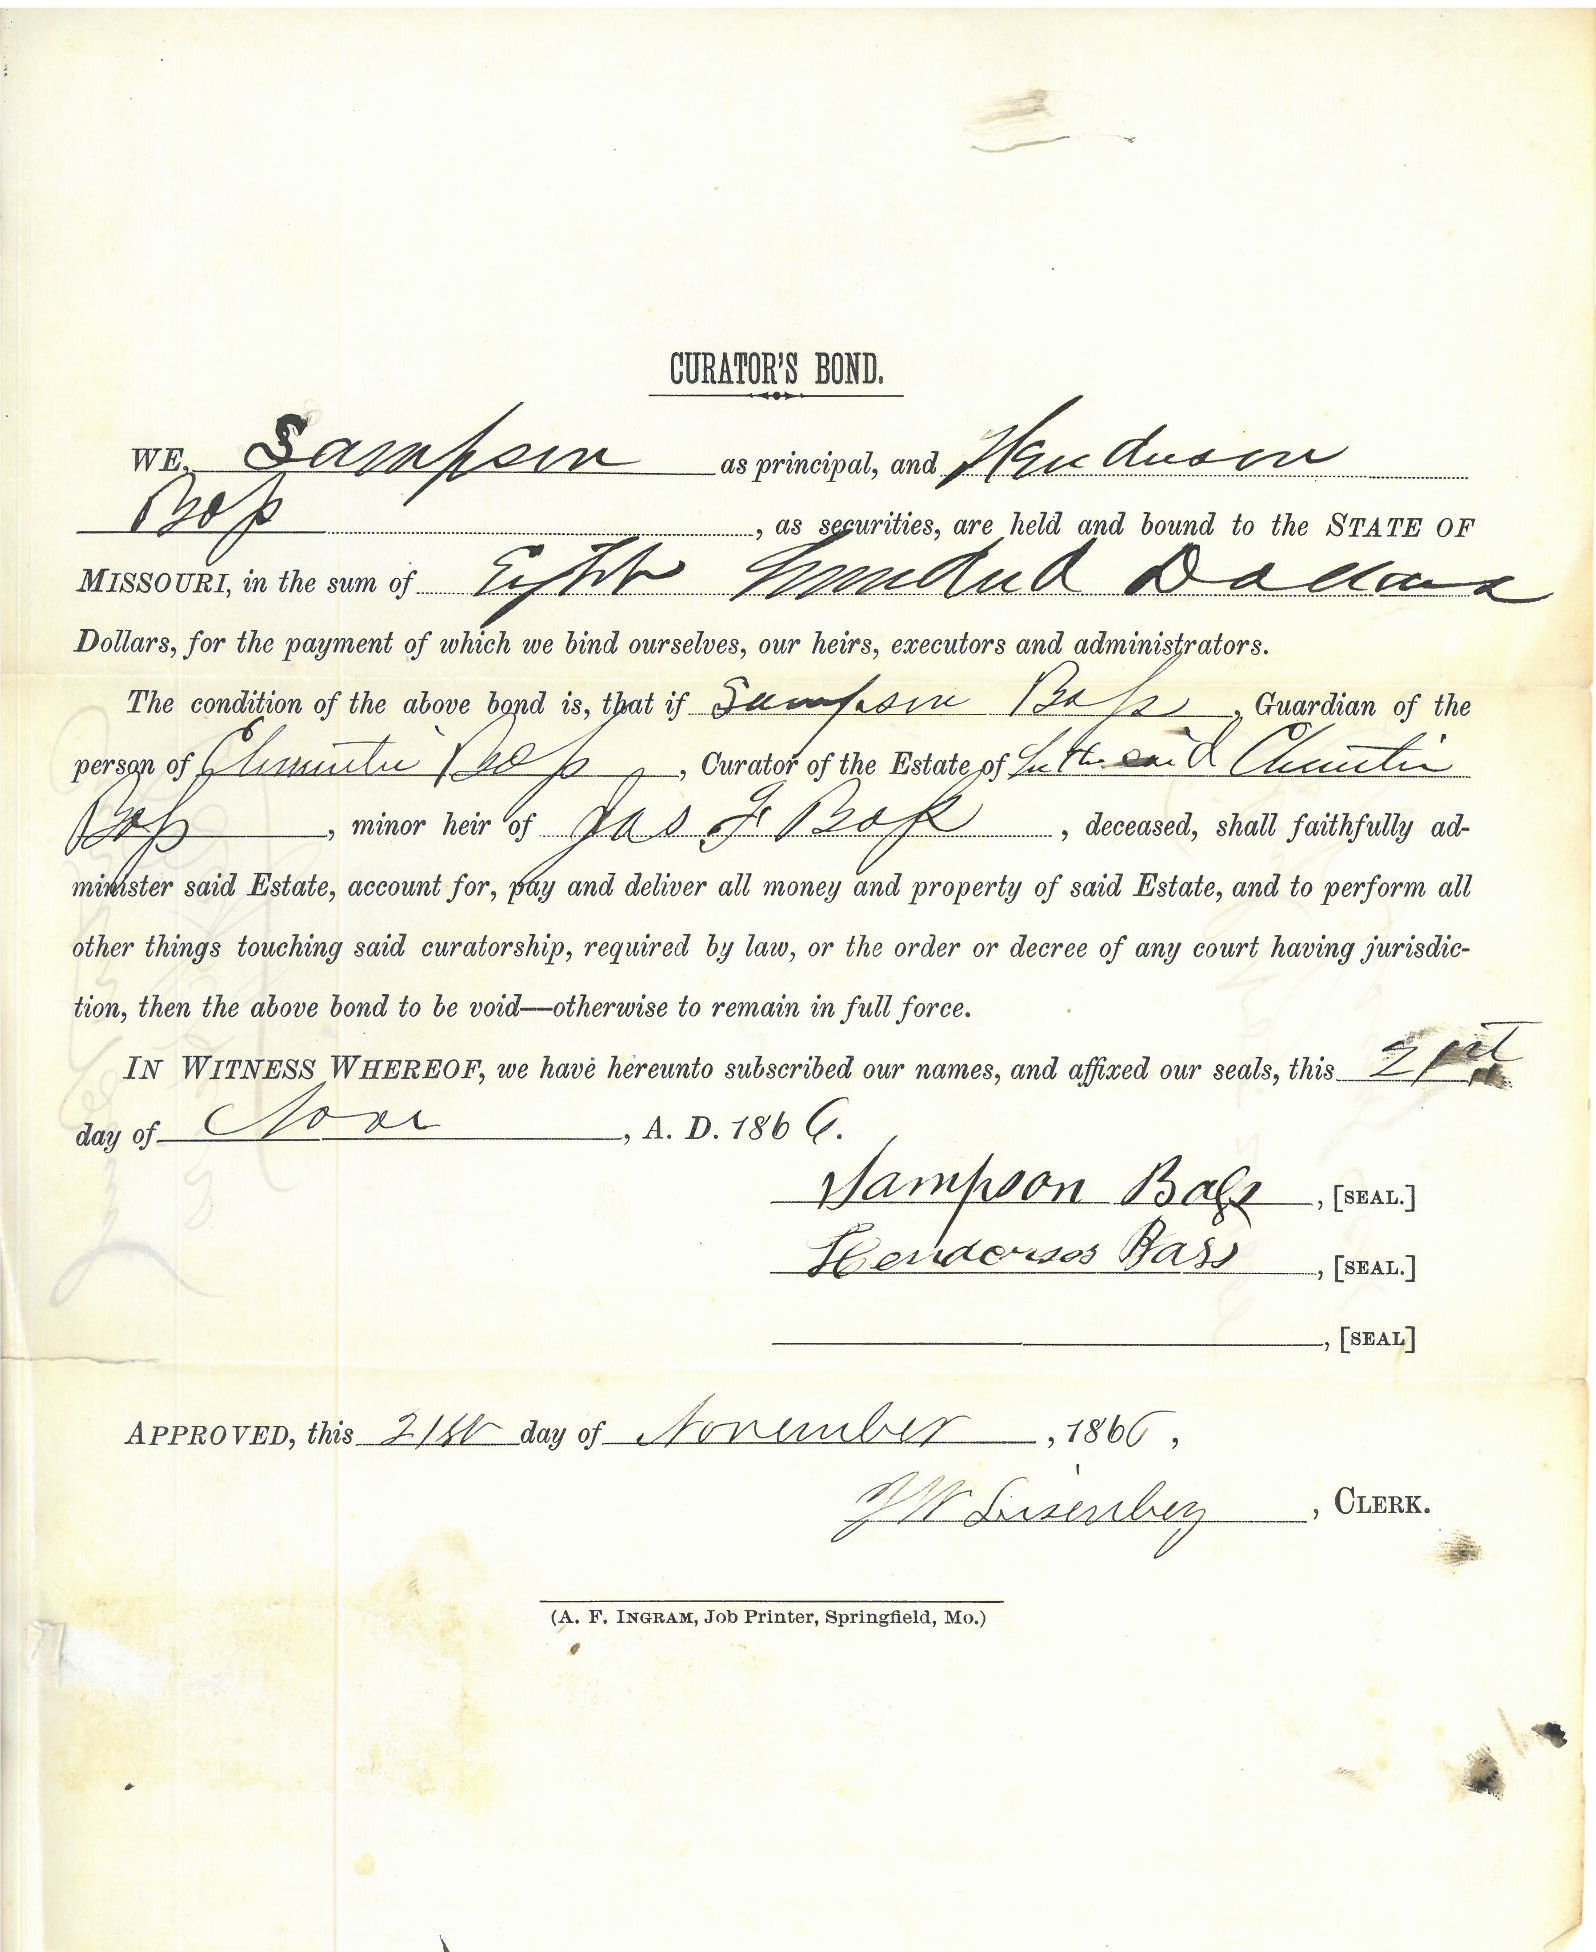 CURATOR'S BOND.
WE, Sampson as principal, and Henderson
Bass, as securities, are held and bound to the STATE OF
MISSOURI, in the sum of Eight hundred Dollars
Dollars, for the payment of which we bind ourselves, our heirs, executors and administrators.
The condition of the above bond is, that if Sampson Bass, Guardian of the
person of Bass, Curator of the Estate of said
Bass, minor heir of Jas F Bass, deceased, shall faithfully ad-
minister said Estate, account for, pay and deliver all money and property of said Estate, and to perform all
other things touching said curatorship, required by law, or the order or decree of any court having jurisdic-
tion, then the above bond to be void—otherwise to remain in full force.
IN WITNESS WHEREOF, we have hereunto subscribed our names, and affixed our seals, this 21st
day of Nov, A. D. 1866.
Sampson Bass, [SEAL.]
Henderson Bass, [SEAL.]
, [SEAL]
APPROVED, this 21st day of November, 1866,
Lisenbey, CLERK.
(A. F. INGRAM, Job Printer, Springfield, Mo.)